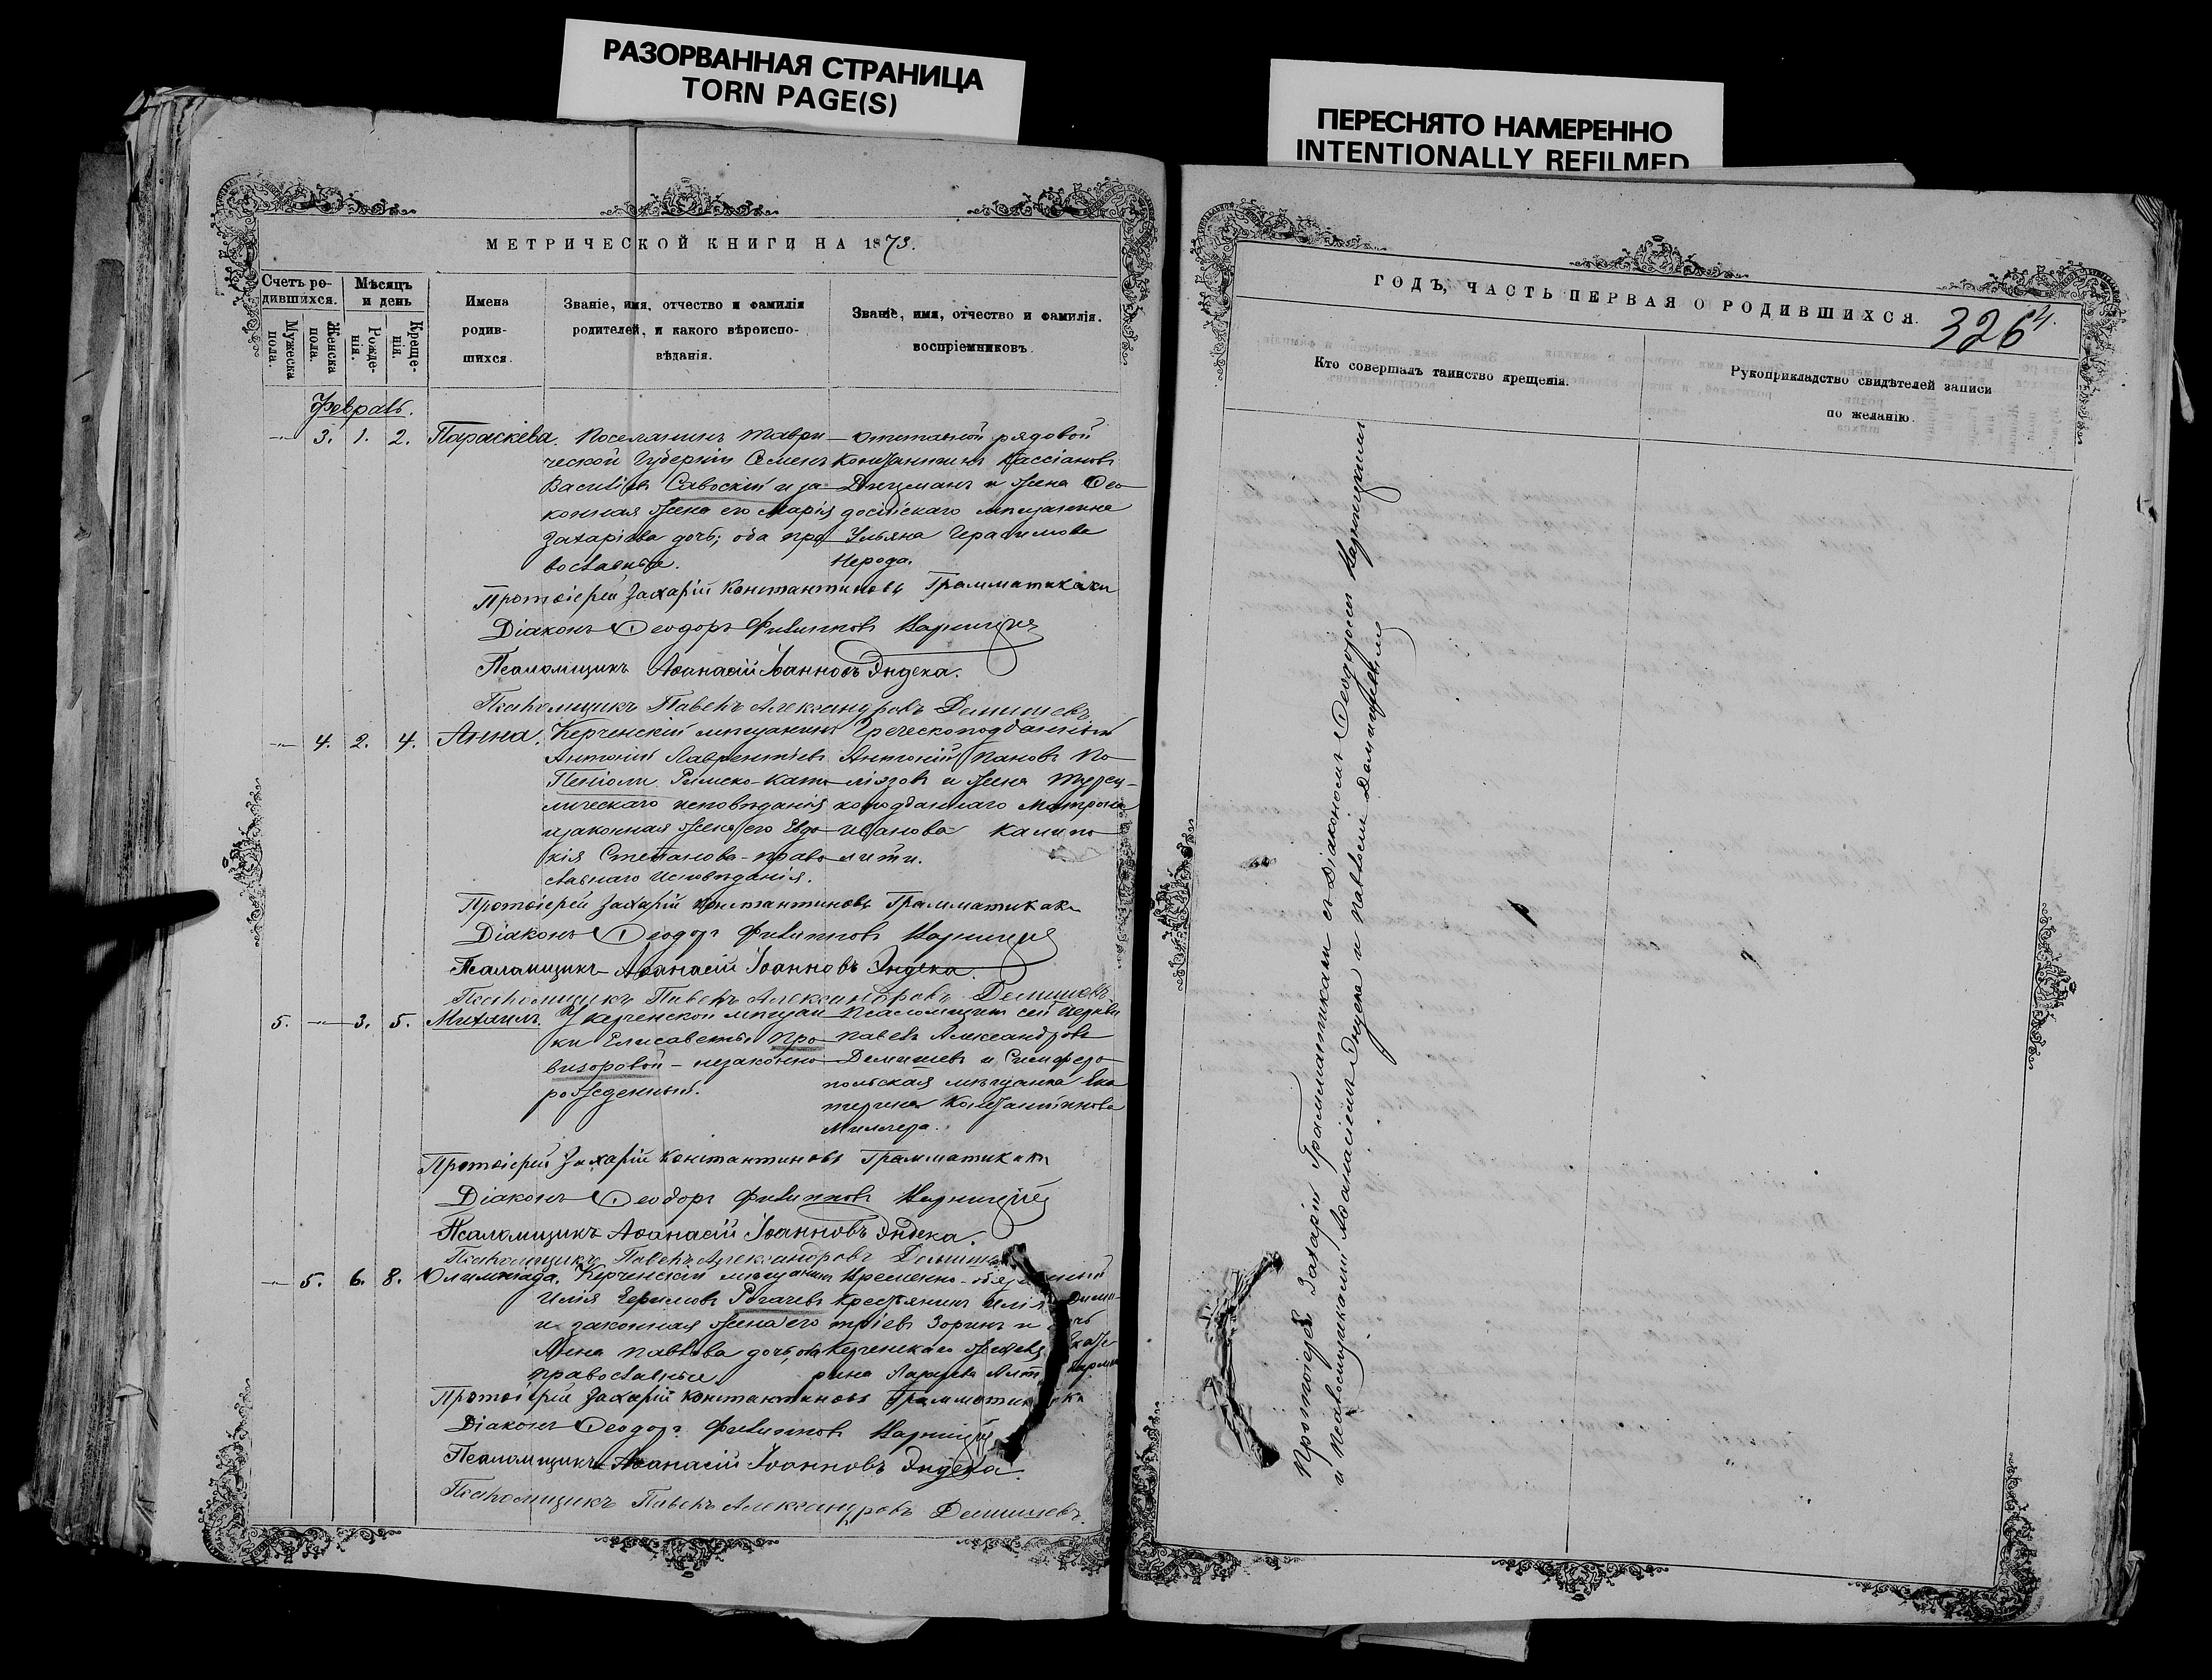 РАЗОРВАННАЯ СТРАНИЦА
TORN PAGE(S)
ПЕРЕСНЯТО НАМЕРЕННО
INTENTIONALLY REFILMED
МЕТРИЧЕСКОЙ КНИГИ НА 1873.
Счетъ ро-
дившихся.
Мужеска
пола.
Женска
пола.
Мѣсяцъ
и день
Рожде-
нія.
Креще-
нія.
Имена
родив-
шихся.
Званіе, имя, отчество и фамилія
родителей, и какого вѣроиспо-
вѣданія.
Званіе, имя, отчество и фамилія.
воспріемниковъ.
Февраль.
3. 1. 2. Параскева.
Поселянинъ Таври-
ческой Губерніи Семенъ
Васильевъ Савоскій и за-
конная жена его Марія
Захаріева дочь; оба пра-
вославные.
Отставной рядовой
Константинъ Кассіановъ
и жена Ѳео-
досійскаго мѣщанина
Ульяна Герасимова
Нерода.
Протоіерей Захарій Константиновъ Грамматикаки
Діаконъ Ѳеодоръ Филипповъ
Псаломщикъ Аѳанасій Іоанновъ Эндека.
Псаломщикъ Павелъ Александровъ Демишевъ
4. 2. 4. Анна.
Керченскій мѣщанинъ
Антоній Лаврентіевъ
Римско-като-
лическаго исповѣданія
и законная жена его Евдо-
кія Степанова - право-
славнаго исповѣданія.
Греческоподданный
Антоній Пановъ По-
и жена Турец-
коподданнаго Матрона
Иванова
Протоіерей Захарій Константиновъ Грамматикаки
Діаконъ Ѳеодоръ Филипповъ
Псаломщикъ Аѳанасій Іоанновъ Эндека.
Псаломщикъ Павелъ Александровъ Демишевъ
5. 3. 5. Михаилъ.
У керченской мѣщан-
ки Елисаветы Про-
визоровой - незаконно-
рожденный.
Псаломщикъ сей Церкви
Павелъ Александровъ
Демишевъ и Симферо-
польская мѣщанка Ека-
терина Константинова
Миллера.
Протоіерей Захарій Константиновъ Грамматикаки
Діаконъ Ѳеодоръ Филипповъ
Псаломщикъ Аѳанасій Іоанновъ Эндека.
Псаломщикъ Павелъ Александровъ
5. 6. 8. Олимпіада.
Керченскій мѣщанинъ
Илія Ефимовъ Рогачевъ
и законная жена его
Анна Павлова дочь, оба
православные.
Временно-обязанный
крестьянинъ Илія Дими-
тріевъ Зоринъ и дочь
Керченскаго
Протоіерей Захарій Константиновъ Грамматикаки
Діаконъ Ѳеодоръ Филипповъ
Псаломщикъ Аѳанасій Іоанновъ Эндека.
Псаломщикъ Павелъ Александровъ Демишевъ.
ГОДЪ, ЧАСТЬ ПЕРВАЯ О РОДИВШИХСЯ.
326
Кто совершалъ таинство крещенія.
Рукоприкладство свидѣтелей записи
по желанію.
Протоіерей Захарій Грамматикаки съ Діакономъ Ѳеодоромъ
и псаломщиками Аѳанасіемъ Эндека и Павломъ Демишевымъ